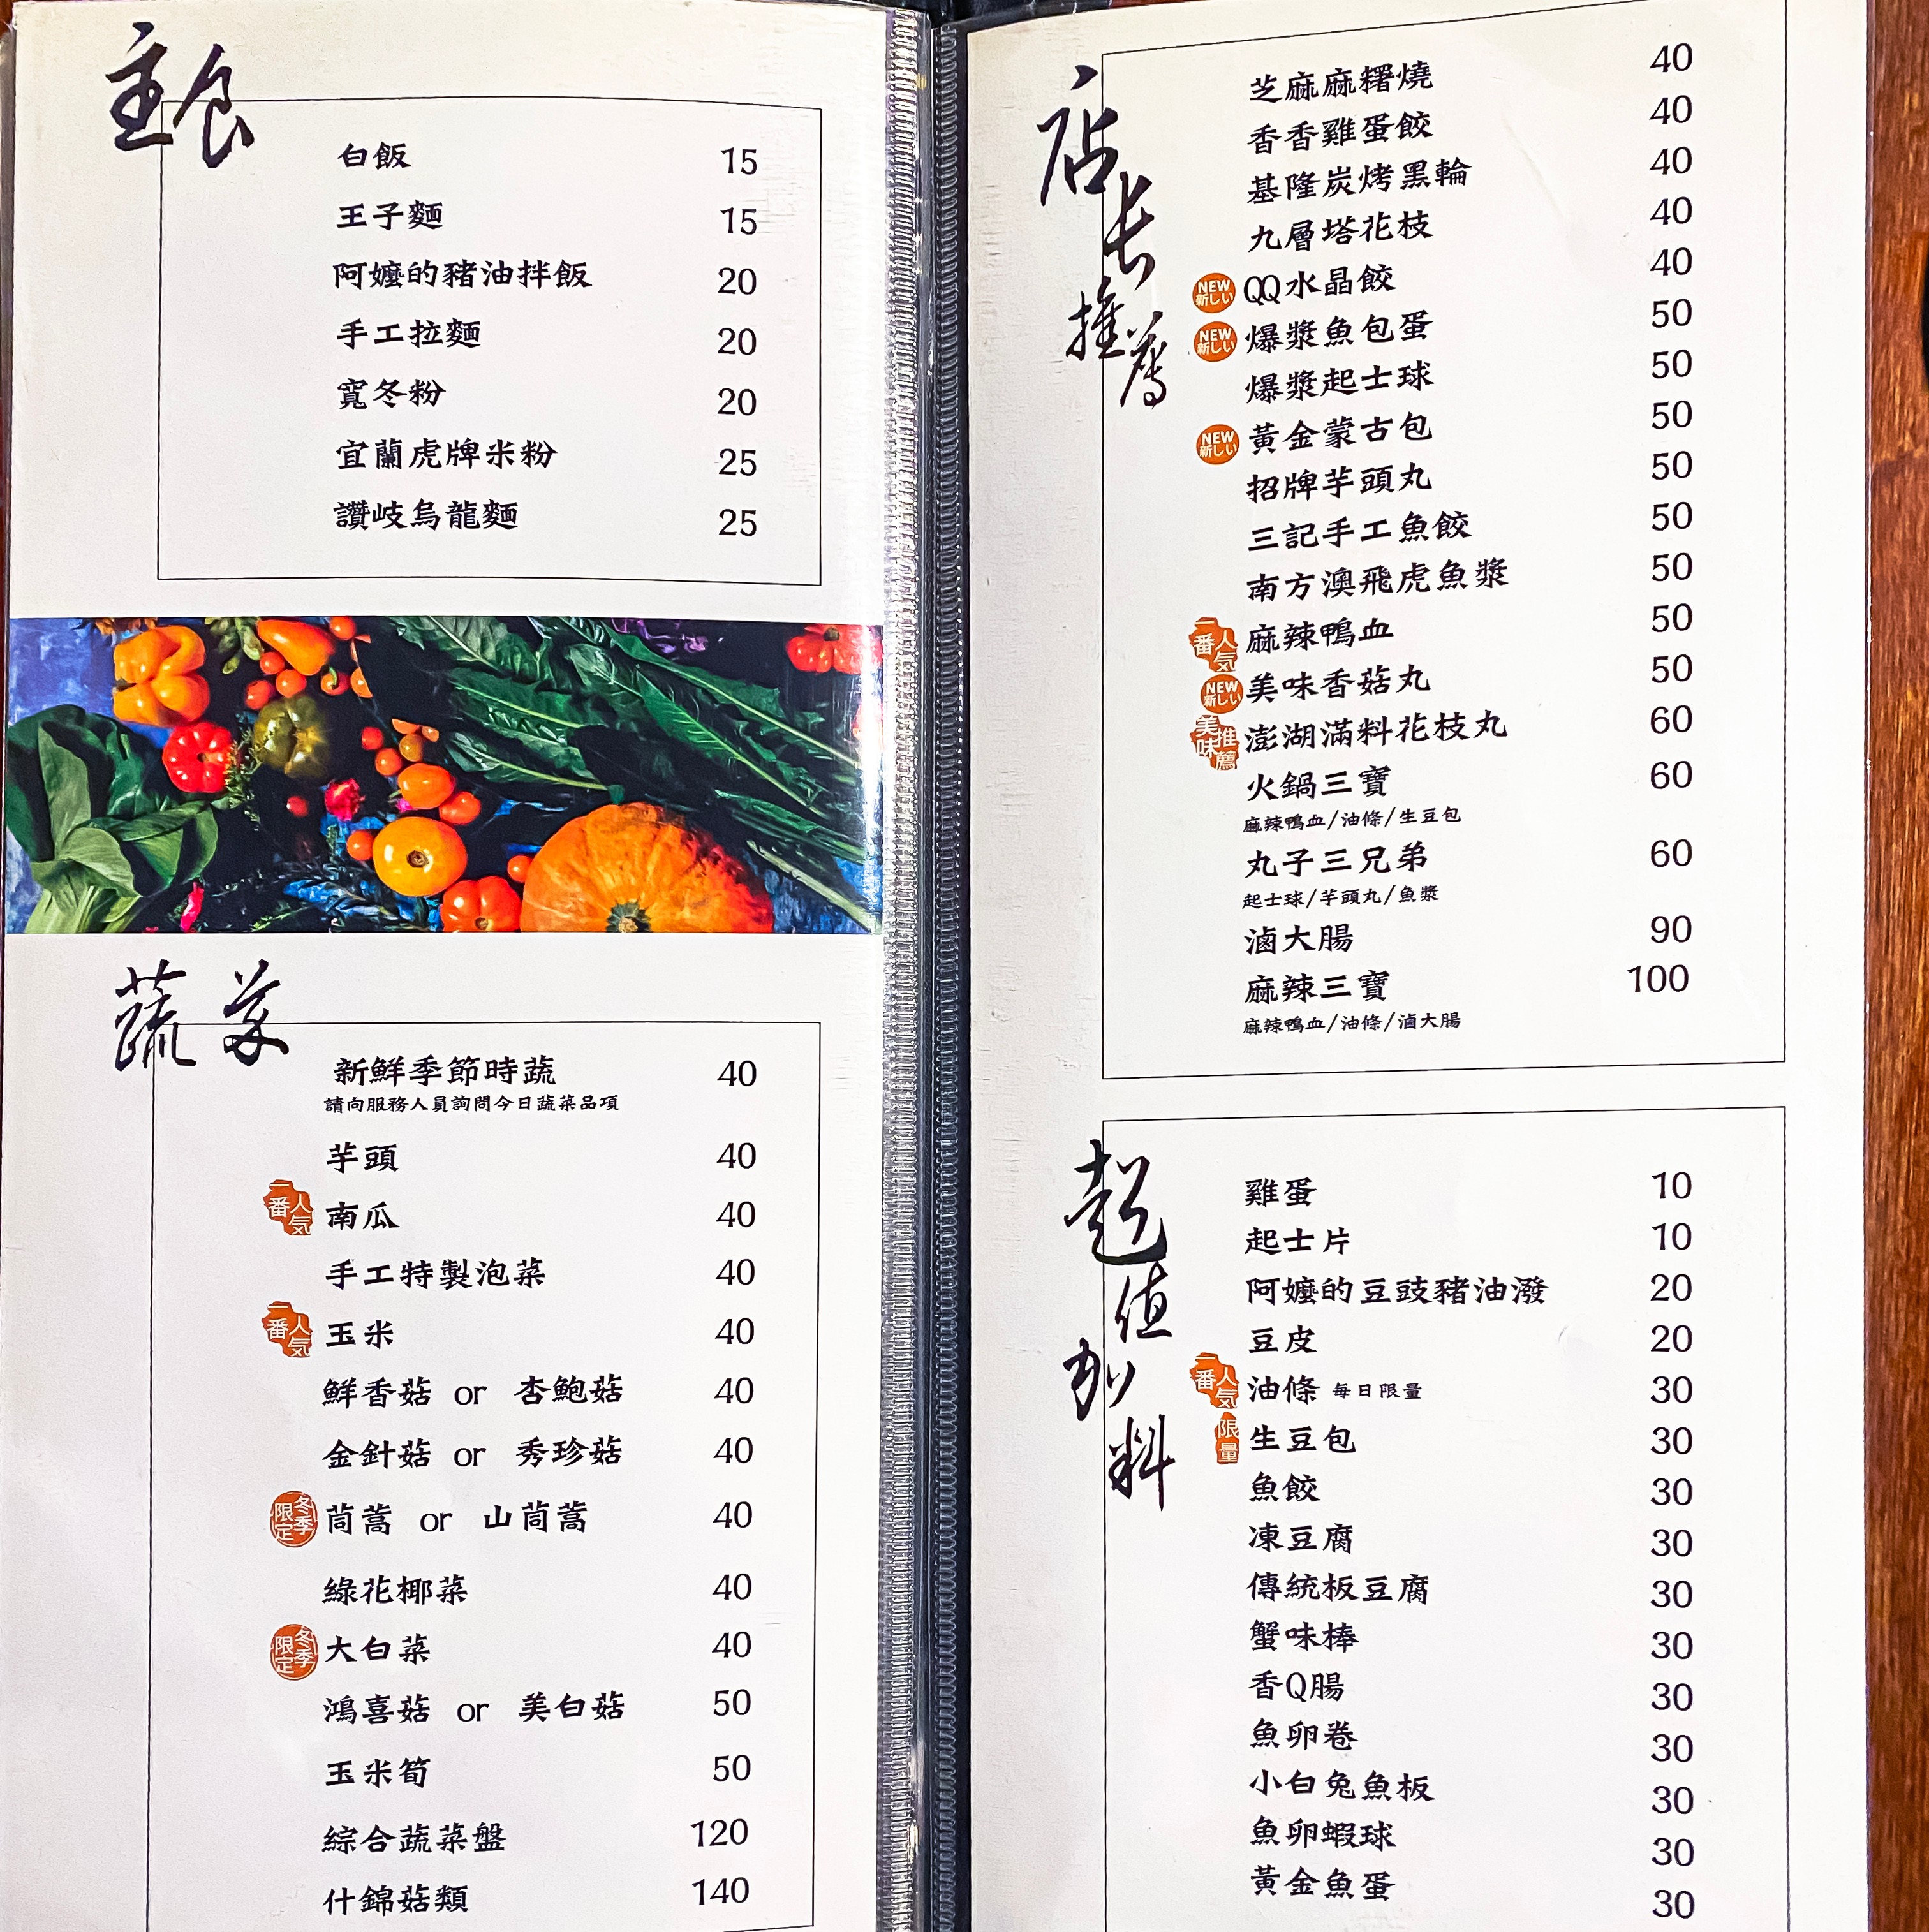 主食
白飯 15
王子麵 15
阿嬤的豬油拌飯 20
手工拉麵 20
寬冬粉 20
宜蘭虎牌米粉 25
讚岐烏龍麵 25
蔬菜
新鮮季節時蔬 40
請向服務人員詢問今日蔬菜品項
芋頭 40
一番人気 南瓜 40
手工特製泡菜 40
一番人気 玉米 40
鮮香菇 or 杏鮑菇 40
金針菇 or 秀珍菇 40
冬季限定 茼蒿 or 山茼蒿 40
綠花椰菜 40
冬季限定 大白菜 40
鴻喜菇 or 美白菇 50
玉米筍 50
綜合蔬菜盤 120
什錦菇類 140
店长推薦
芝麻麻糬燒 40
香香雞蛋餃 40
基隆炭烤黑輪 40
九層塔花枝 40
NEW 新しい QQ水晶餃 40
NEW 新しい 爆漿魚包蛋 50
爆漿起士球 50
NEW 新しい 黃金蒙古包 50
招牌芋頭丸 50
三記手工魚餃 50
南方澳飛虎魚漿 50
一番人気 麻辣鴨血 50
NEW 新しい 美味香菇丸 50
美味推薦 澎湖滿料花枝丸 60
火鍋三寶 60
麻辣鴨血/油條/生豆包
丸子三兄弟 60
起士球/芋頭丸/魚漿
滷大腸 90
麻辣三寶 100
麻辣鴨血/油條/滷大腸
超值加料
雞蛋 10
起士片 10
阿嬤的豆豉豬油潑 20
豆皮 20
一番人気 油條 每日限量 30
限量 生豆包 30
魚餃 30
凍豆腐 30
傳統板豆腐 30
蟹味棒 30
香Q腸 30
魚卵卷 30
小白兔魚板 30
魚卵蝦球 30
黃金魚蛋 30